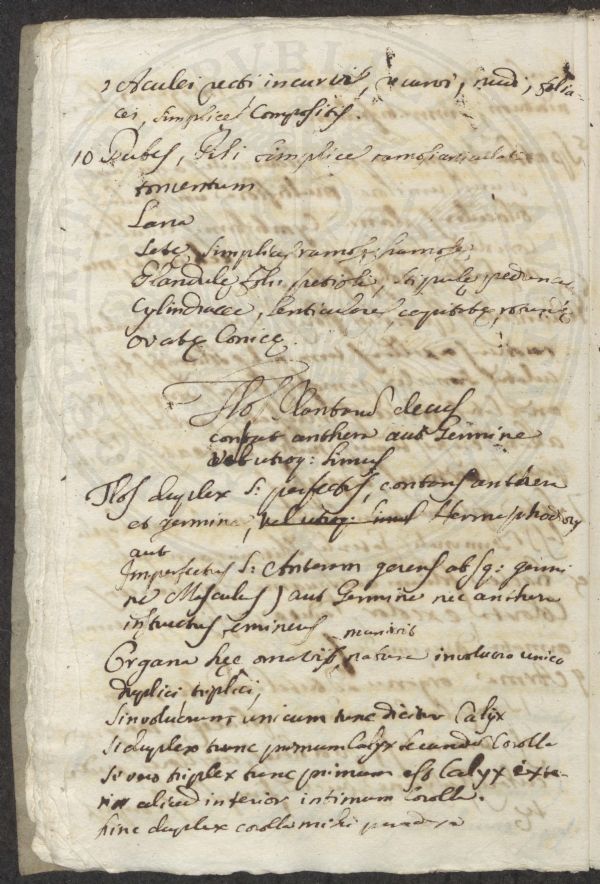 Aculei recti incurvi, recurvi, nudi, folia
cei, simplices Compositi.
10 Pubes, Pili simplice ramosi
tomentum
Lana
Setę simplices ramosę hamosę
Glandulę folii, petioli, stipulę peduncul
Cylindracę, lenticulares, rotundę
ovatę Conicę.
Flos Plantarum decus
constat anthera aut Germine
vel utroq: simul
Flos duplex s: perfectus, continens antheram
et germina, vel utroq: simul Hermaphrod
aut
Imperfectus s: Anteram gerens absq: germi
ne Masculus) aut Germine nec anthera
instructus, emineus
munivit
Organa hęc omnibus, natura involucro unico
duplici triplici,
Si involucrum unicum tunc dicitur Calyx
Si duplex tunc primum Calyx secundum Corolla
Si vero triplex tunc primum est Calyx exte-
rior aliud interior intimum Corolla.
hinc duplex corolla mihi